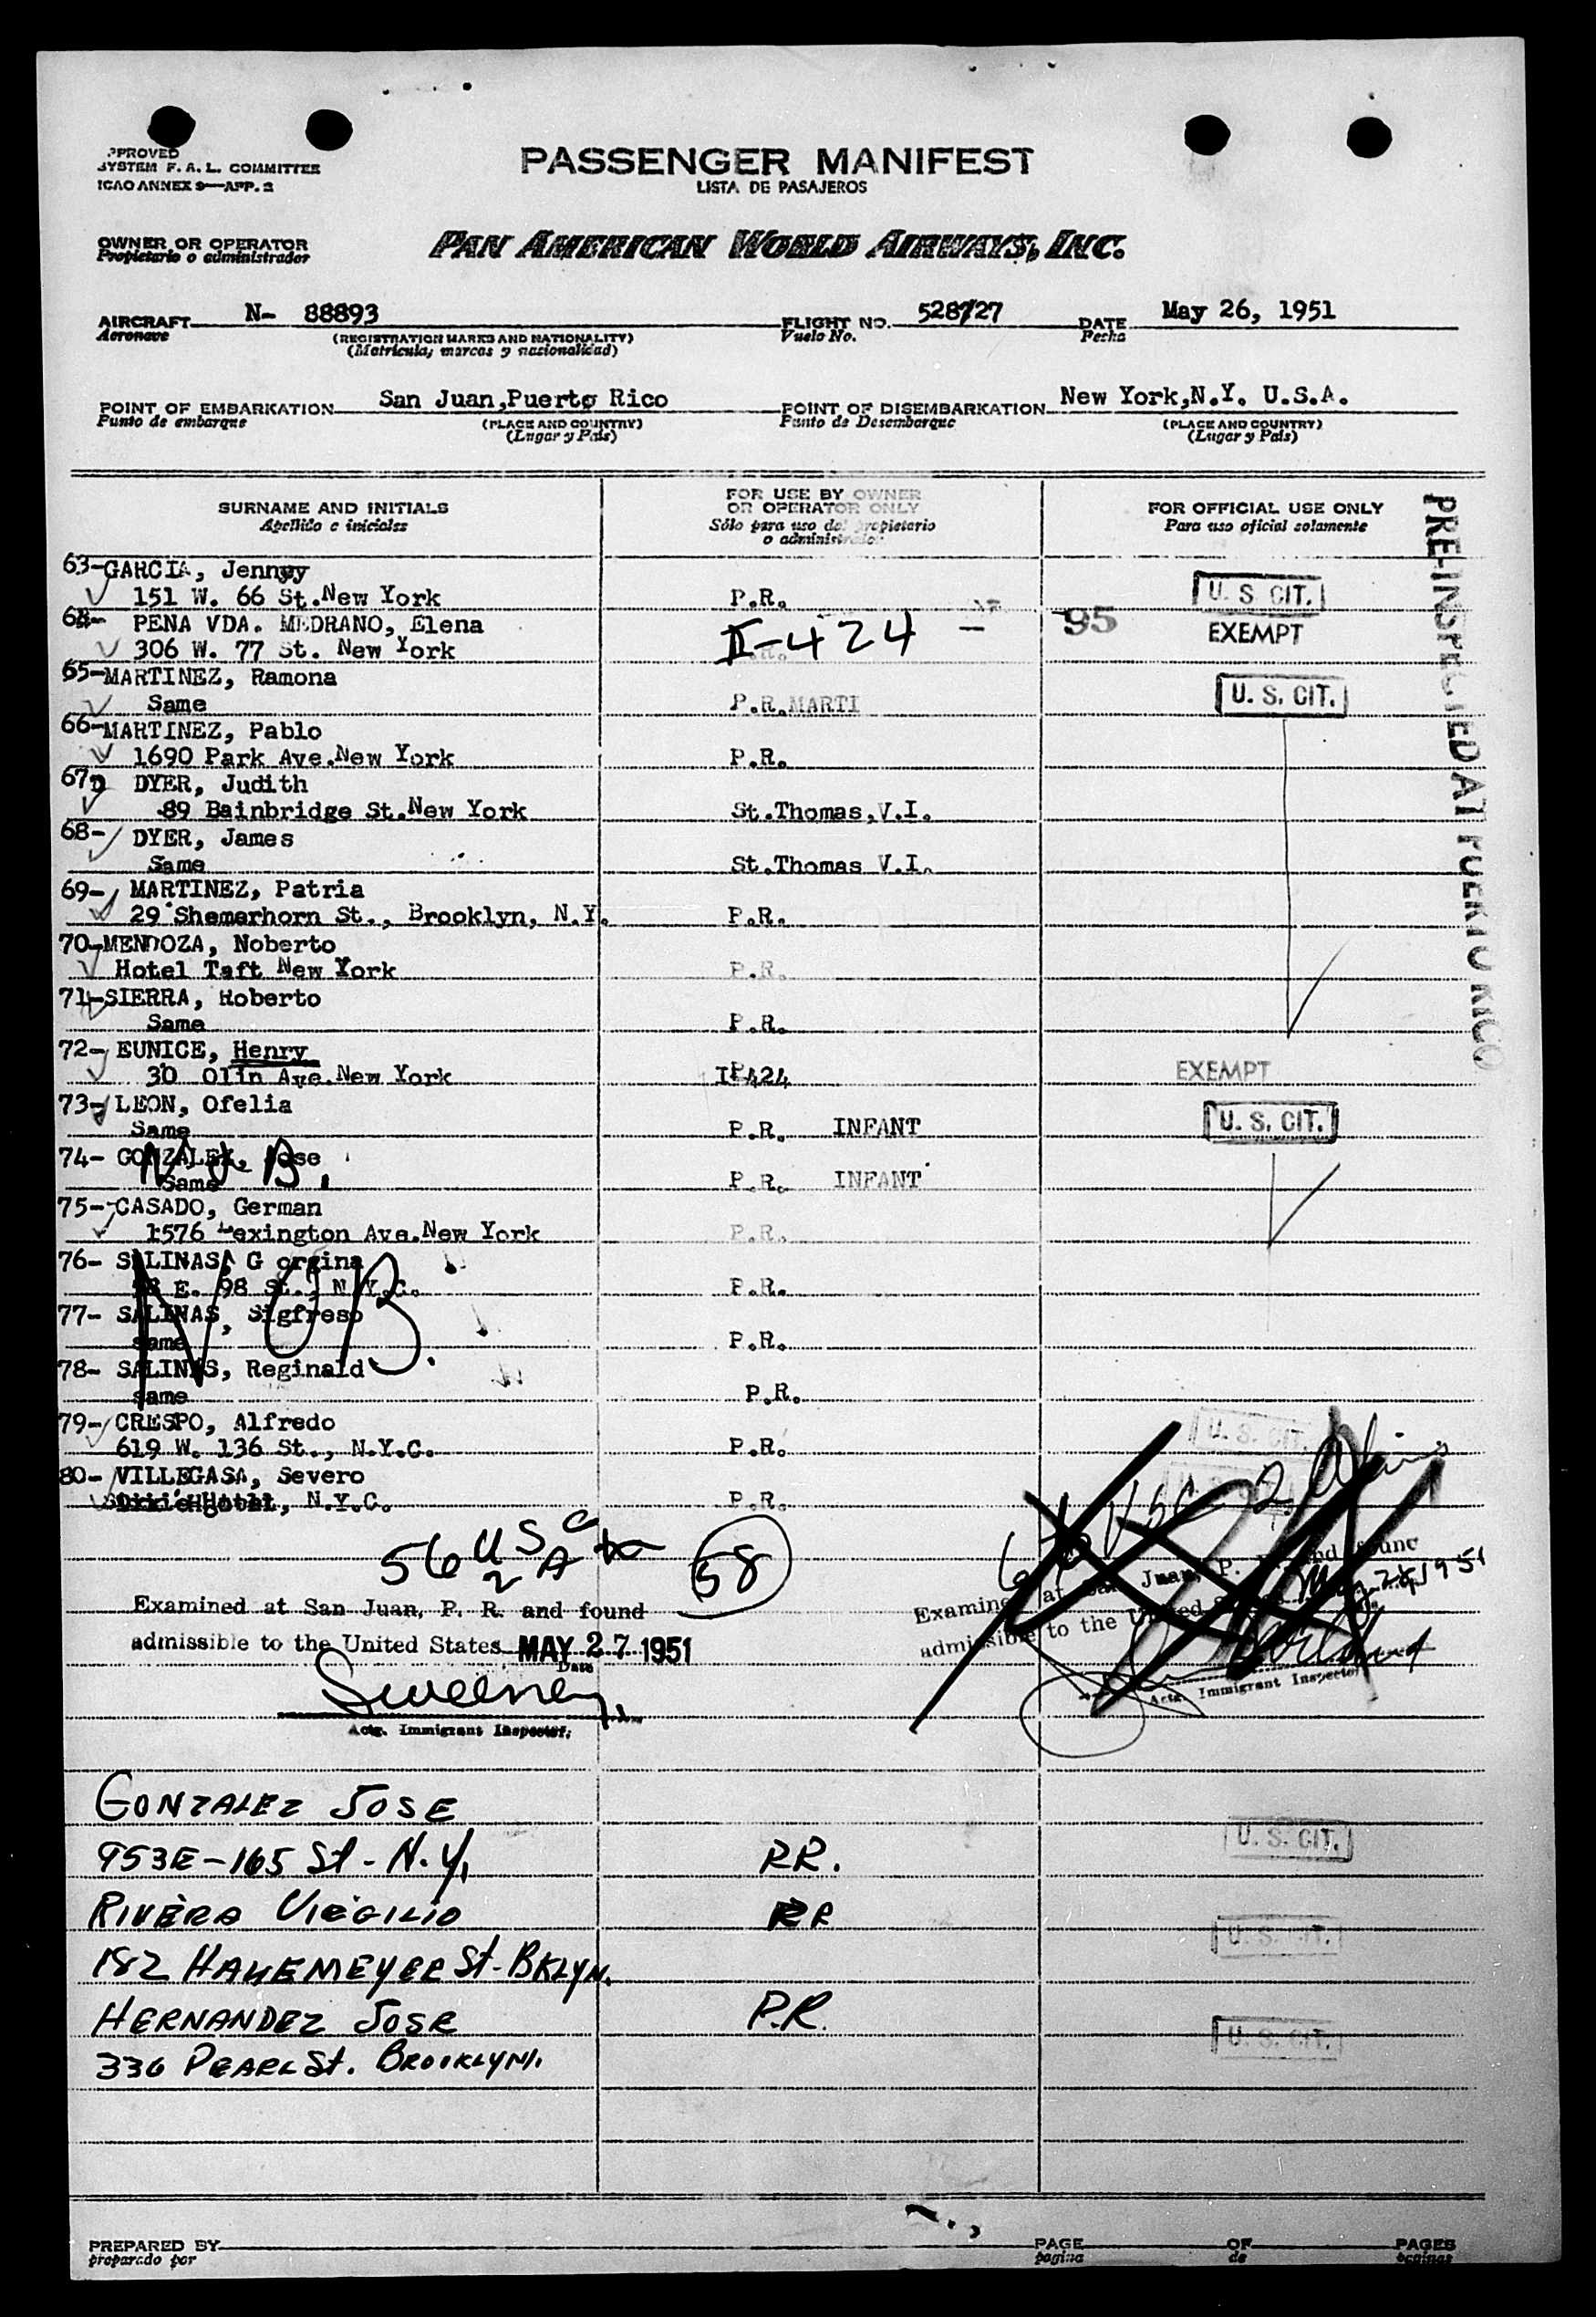 APPROVED
SYSTEM F. A. L. COMMITTEE
ICAO ANNEX 9—APP. 2
PASSENGER MANIFEST
LISTA DE PASAJEROS
OWNER OR OPERATOR
Propietario o administrador
PAN AMERICAN WORLD AIRWAYS, INC.
AIRCRAFT N- 88893 FLIGHT NO. 528/727 DATE May 26, 1951
Aeronave (REGISTRATION MARKS AND NATIONALITY) Vuelo No. Fecha
(Matricula, marcas y nacionalidad)
POINT OF EMBARKATION San Juan,Puerto Rico POINT OF DISEMBARKATION New York,N.Y. U.S.A.
Punto de embarque (PLACE AND COUNTRY) Punto de Desembarque (PLACE AND COUNTRY)
(Lugar y País) (Lugar y País)
SURNAME AND INITIALS FOR USE BY OWNER OR OPERATOR ONLY FOR OFFICIAL USE ONLY
Apellido e iniciales Sólo para uso del propietario o administrador Para uso oficial solamente
PRE-INSPECTED AT PUERTO RICO
63-GARCIA, Jenney
151 W. 66 St.New York P.R. U. S. CIT.
64- PENA VDA. MEDRANO, Elena
306 W. 77 St. New York II-424 - 95 EXEMPT
65-MARTINEZ, Ramona
Same P.R.MARTI U. S. CIT.
66-MARTINEZ, Pablo
1690 Park Ave.New York P.R.
67- DYER, Judith
89 Bainbridge St.New York St.Thomas,V.I.
68- DYER, James
Same St.Thomas V.I.
69- MARTINEZ, Patria
29 Shemerhorn St., Brooklyn, N.Y. P.R.
70-MENDOZA, Noberto
Hotel Taft New York P.R.
71-SIERRA, Roberto
Same P.R.
72- EUNICE, Henry
30 Olin Ave.New York I-424 EXEMPT
73- LEON, Ofelia
Same P.R. INFANT U. S. CIT.
74- GONZALEZ, Jose
Same P.R. INFANT
N.O.B.
75- CASADO, German
1576 Lexington Ave.New York P.R.
76- SALINAS, G orgina
E. 98 St., N.Y.C. P.R.
77- SALINAS, Sigfreso
same P.R.
N O B.
78- SALINAS, Reginald
same P.R.
79- CRESPO, Alfredo
619 W. 136 St., N.Y.C. P.R. U. S. CIT.
80- VILLEGASA, Severo
Hotel, N.Y.C. P.R.
56 USC
2 A 58
Examined at San Juan, P. R. and found
admissible to the United States MAY 27 1951
Date
Sweeney
Actg. Immigrant Inspector.
Examined at San Juan, P. R. and found
admissible to the United States
Actg. Immigrant Inspector
GONZALEZ JOSE
953E-165 St - N.Y. P.R. U. S. CIT.
RIVERA VIRGILIO P.R. U. S. CIT.
182 HAVEMEYER St-BKLYN.
HERNANDEZ JOSE P.R. U. S. CIT.
336 PEARL St. BROOKLYN.
PREPARED BY PAGE OF PAGES
preparado por pagina de paginas